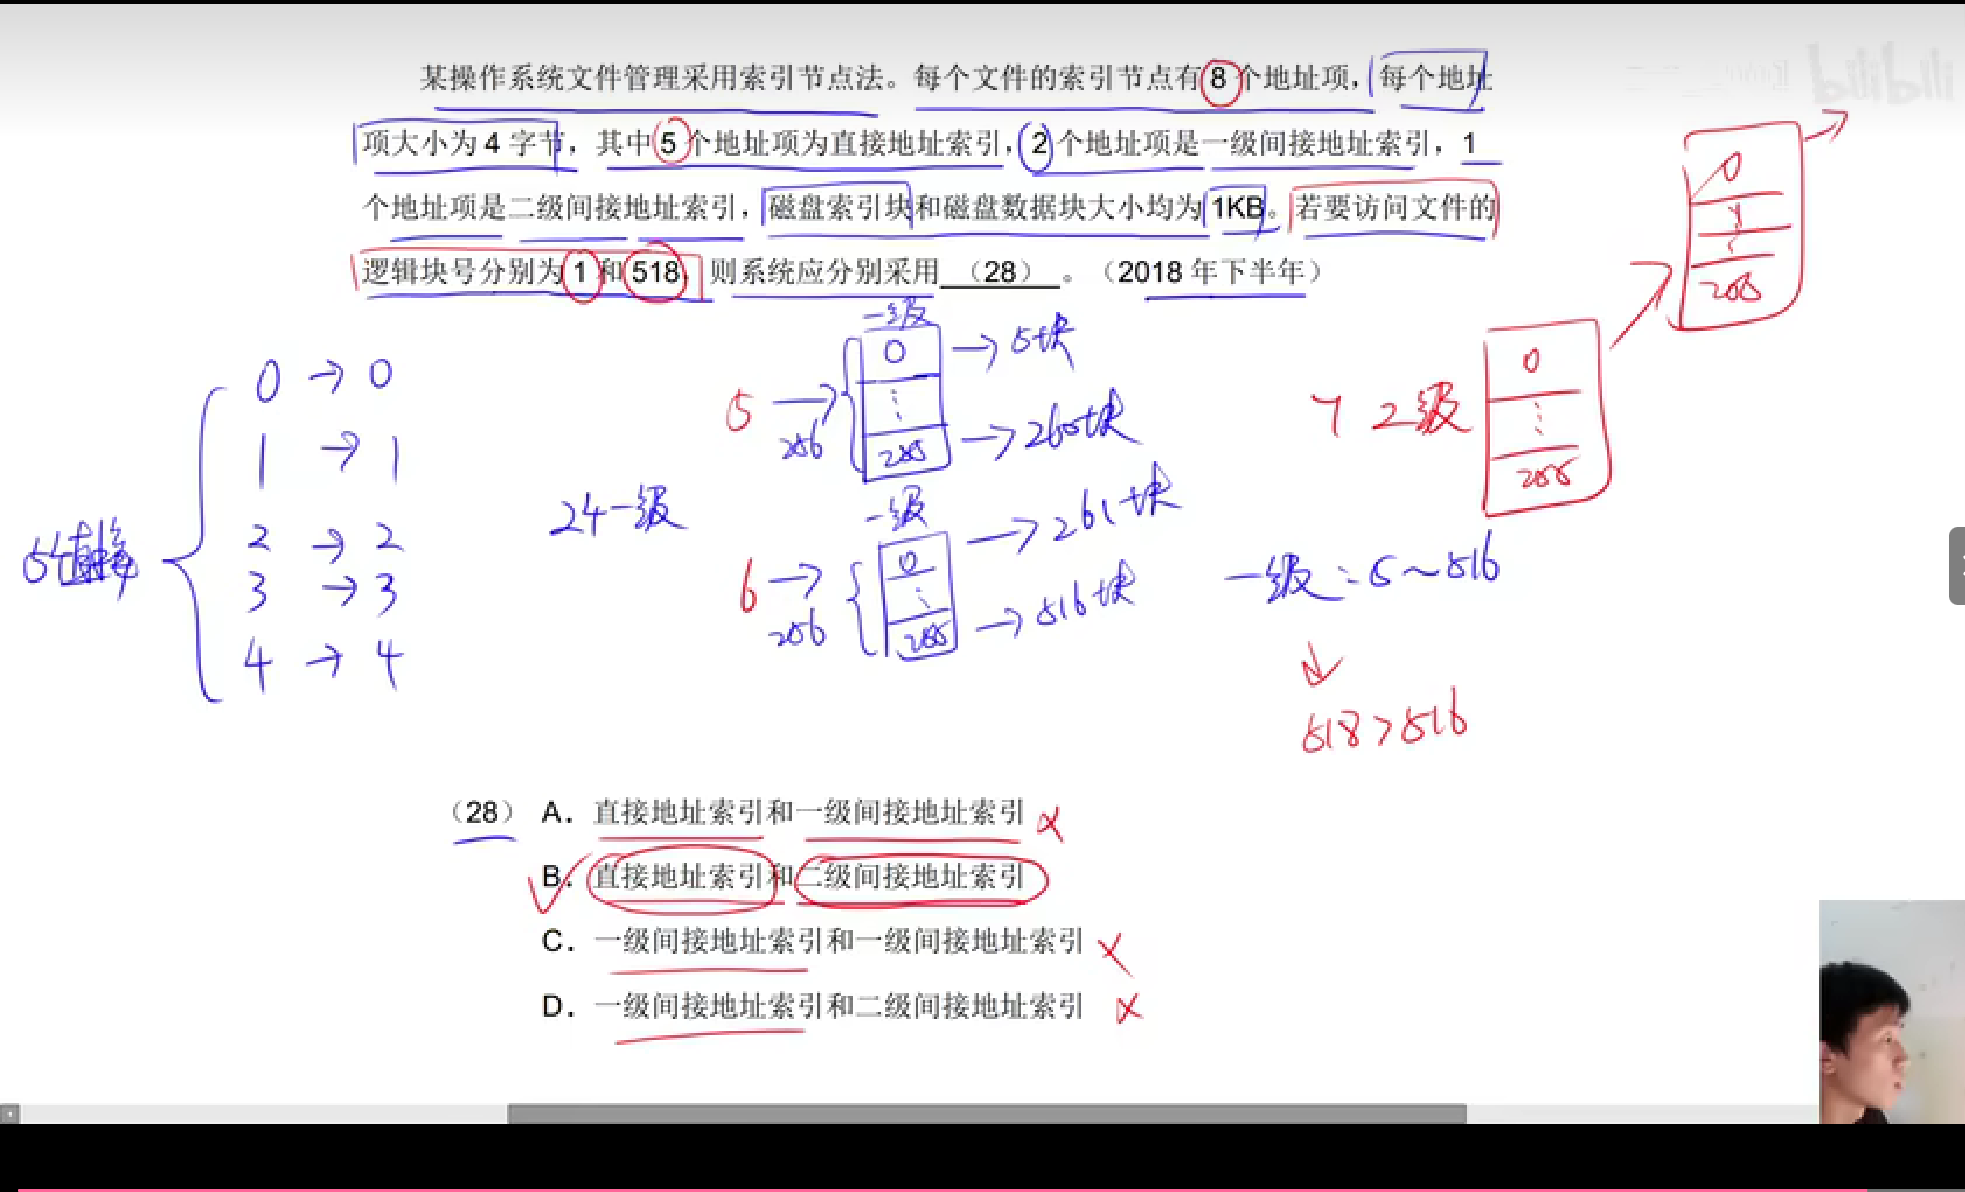 bilibili
某操作系统文件管理采用索引节点法。每个文件的索引节点有8个地址项，每个地址
项大小为4字节，其中5个地址项为直接地址索引，2个地址项是一级间接地址索引，1
个地址项是二级间接地址索引，磁盘索引块和磁盘数据块大小均为1KB。若要访问文件的
逻辑块号分别为1和518，则系统应分别采用（28）。（2018年下半年）
5个直接
0→0
1→1
2→2
3→3
4→4
2个一级
一级
5→256
0→5块
⋮
255→260块
一级
6→256
0→261块
⋮
255→516块
7 2级
0
⋮
255
0
1
⋮
255
一级：5～516
↓
518>516
（28） A. 直接地址索引和一级间接地址索引 ×
B. 直接地址索引和二级间接地址索引
C. 一级间接地址索引和一级间接地址索引 ×
D. 一级间接地址索引和二级间接地址索引 ×